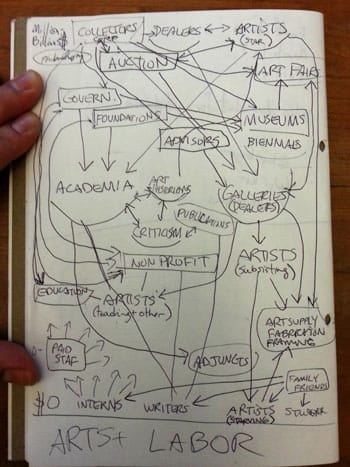 Million
Billion $
COLLECTORS
DEALERS
ARTISTS
(STAR)
AUCTION
ART FAIRS
GOVERN.
FOUNDATIONS
MUSEUMS
BIENNALS
ADVISORS
ACADEMIA
ART
HISTORIANS
GALLERIES
(DEALERS)
PUBLICATIONS
CRITICISM
NON PROFIT
ARTISTS
(subsisting)
EDUCATION
ARTISTS
(teaching + other)
ART SUPPLY
FABRICATION
FRAMING
PAID
STAF
ADJUNCTS
FAMILY
FRIENDS
$0
INTERNS
WRITERS
ARTISTS
(STARVING)
ARTS + LABOR